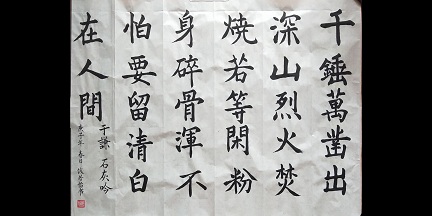 千錘萬凿出
深山烈火焚
燒若等閑粉
身碎骨渾不
怕要留清白
在人間
于謙 石灰吟
庚子年 春日